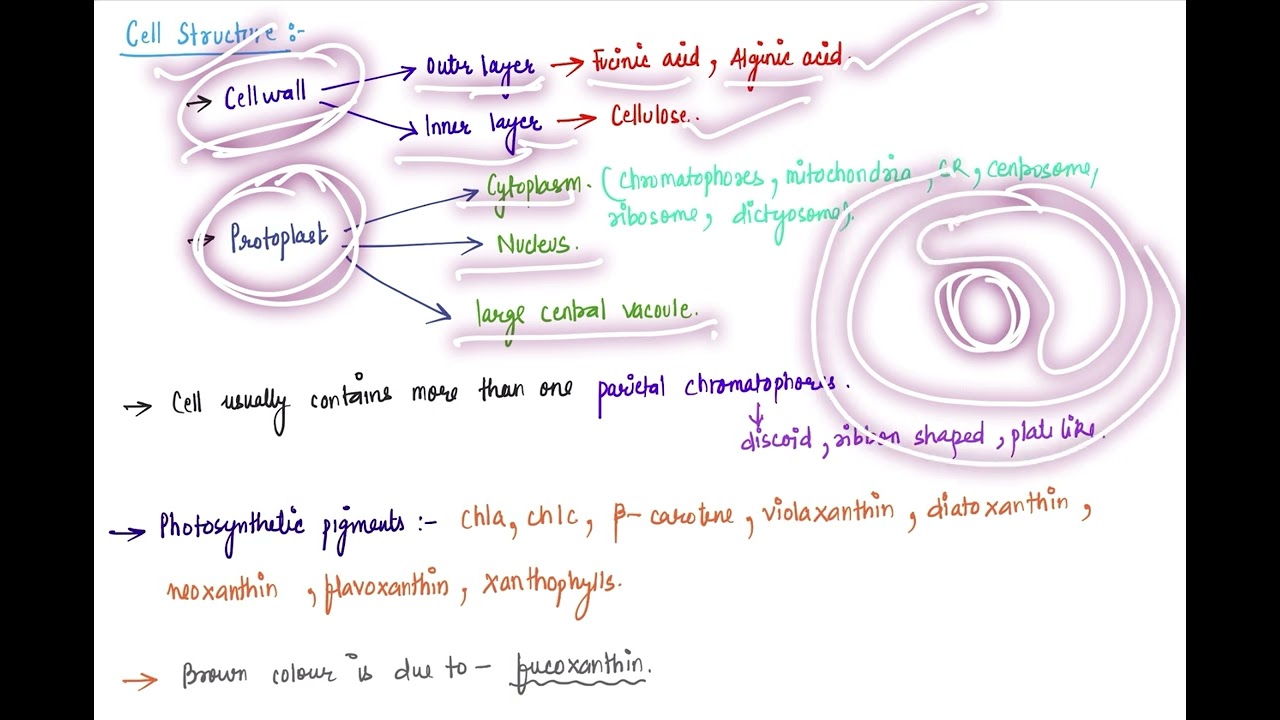 Cell Structure :-
→ Cell wall
→ Outer layer → Fucinic acid, Alginic acid.
→ Inner layer → Cellulose.
→ Protoplast
→ Cytoplasm. (chromatophores, mitochondria, ER, centrosome,
ribosome, dictyosome).
→ Nucleus.
→ large central vacoule.
→ Cell usually contains more than one parietal chromatophores.
↓
discoid, ribbon shaped, plate like.
→ Photosynthetic pigments :- chla, chlc, β-carotene, violaxanthin, diatoxanthin,
neoxanthin, flavoxanthin, xanthophylls.
→ Brown colour is due to - fucoxanthin.